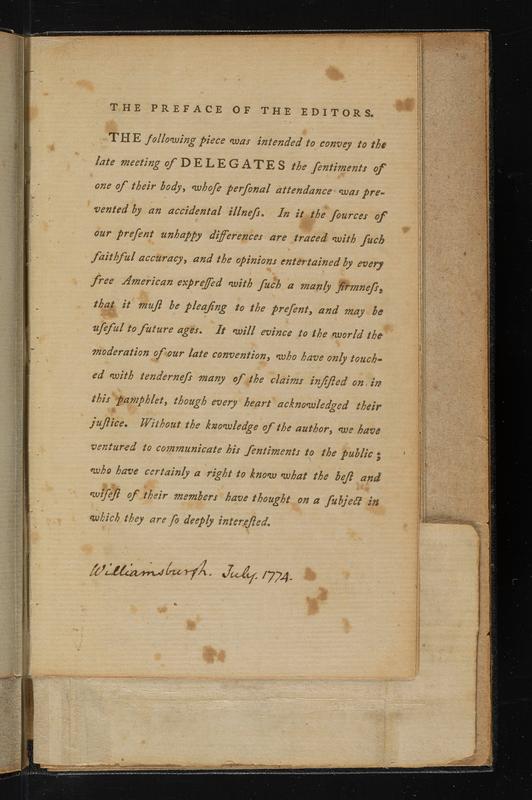 THE PREFACE OF THE EDITORS.
THE following piece was intended to convey to the
late meeting of DELEGATES the ſentiments of
one of their body, whoſe perſonal attendance was pre-
vented by an accidental illneſs. In it the ſources of
our preſent unhappy differences are traced with ſuch
faithful accuracy, and the opinions entertained by every
free American expreſſed with ſuch a manly firmneſs,
that it muſt be pleaſing to the preſent, and may be
uſeful to future ages. It will evince to the world the
moderation of our late convention, who have only touch-
ed with tenderneſs many of the claims inſiſted on in
this pamphlet, though every heart acknowledged their
juſtice. Without the knowledge of the author, we have
ventured to communicate his ſentiments to the public;
who have certainly a right to know what the beſt and
wiſeſt of their members have thought on a ſubject in
which they are ſo deeply intereſted.
Williamsburgh. July. 1774.